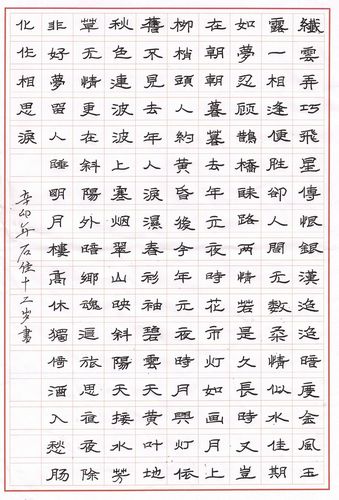 纖雲弄巧飛星傳恨銀漢迢迢暗度金風玉
露一相逢便勝卻人間无數柔情似水佳期
如夢忍顧鵲橋歸路兩情若是久長時又豈
在朝朝暮暮去年元夜時花市灯如画月上
柳梢頭人約黃昏後今年元夜時月與灯依
舊不見去年人淚濕春衫袖碧雲天黃葉地
秋色連波波上寒烟翠山映斜陽天接水芳
草无情更在斜陽外暗鄉魂追旅思夜夜除
非好夢留人睡明月樓高休獨倚酒入愁腸
化作相思淚
辛卯年石佳十二岁書